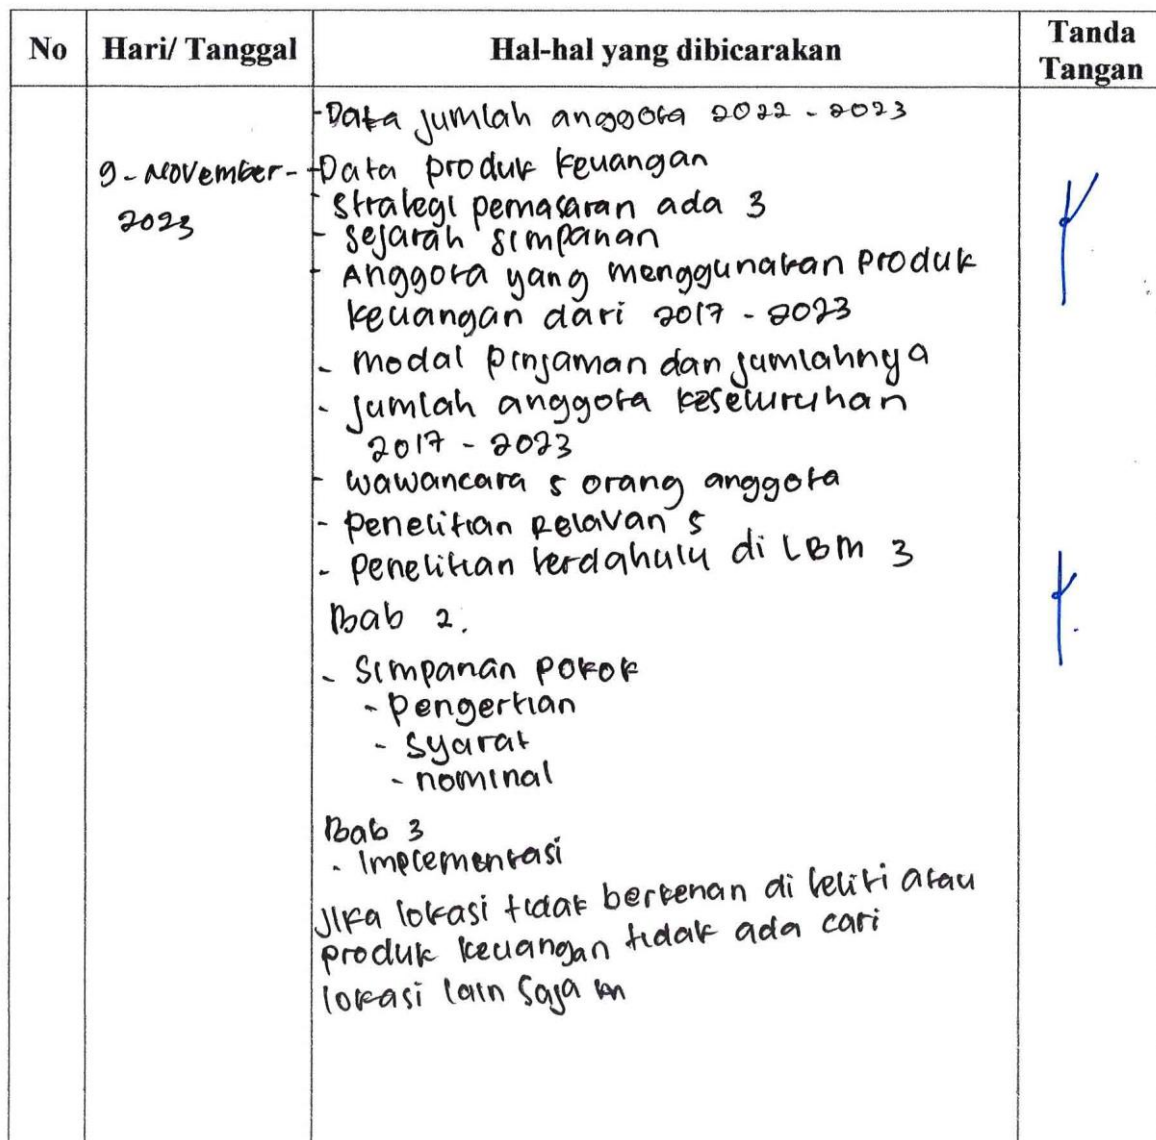 No
Hari/ Tanggal
Hal-hal yang dibicarakan
Tanda
Tangan
9 - November -
2023
- Data jumlah anggota 2022 - 2023
- Data produk keuangan
- strategi pemasaran ada 3
- sejarah simpanan
- Anggota yang menggunakan produk
keuangan dari 2017 - 2023
- modal pinjaman dan jumlahnya
- jumlah anggota keseluruhan
2017 - 2023
- wawancara 5 orang anggota
- penelitian Relavan 5
- penelitian terdahulu di LBM 3
Bab 2.
- Simpanan pokok
- pengertian
- syarat
- nominal
Bab 3
- Implementasi
Jika lokasi tidak berkenan di teliti atau
produk keuangan tidak ada cari
lokasi lain saja